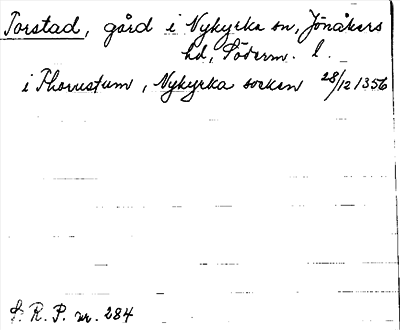 Torstad, gård i Nykyrka sn, Jönåkers
hd, Söderm. l.
i Thorustum, Nykyrka socken 28/12 1356
S. R. P. nr. 284